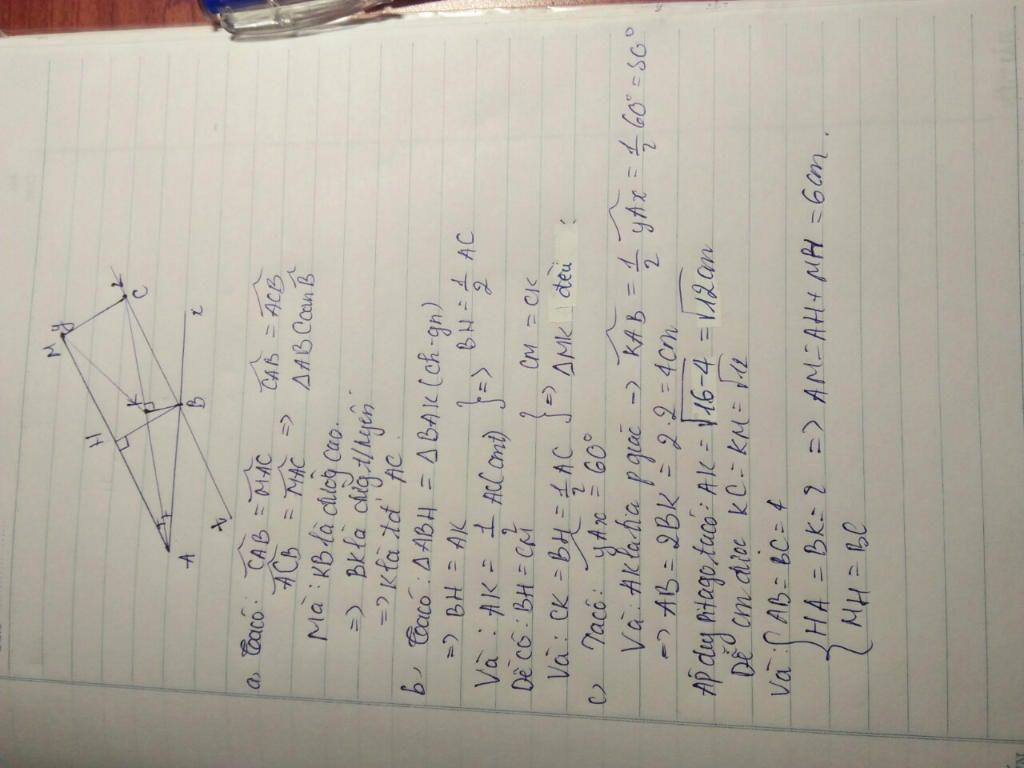 M
y
H
K
C
A
B
x
a, Ta có: CAB = MAC
ACB = MAC => CAB = ACB
ΔABC cân B
Mà: KB là đường cao.
=> BK là đg t/tuyến
=> K là tđ AC.
b, Ta có: ΔABH = ΔBAK (ch-gn)
=> BH = AK
Và: AK = 1/2 AC (cmt) } => BH = 1/2 AC
Dề có: BH = CM
Và: CK = BH = 1/2 AC } => CM = CK
ΔMK đều :
c, Ta có: yAx = 60°
Và: AK là tia p giác -> KAB = 1/2 yAx = 1/2 60° = 30°
=> AB = 2BK = 2.2 = 4cm
Áp dụng pitago, ta có: AK = √16-4 = √12cm
Dễ cm được KC = KM = √12
Và: { AB = BC = 4
HA = BK = 2 => AM = AH + MH = 6cm.
MH = BC